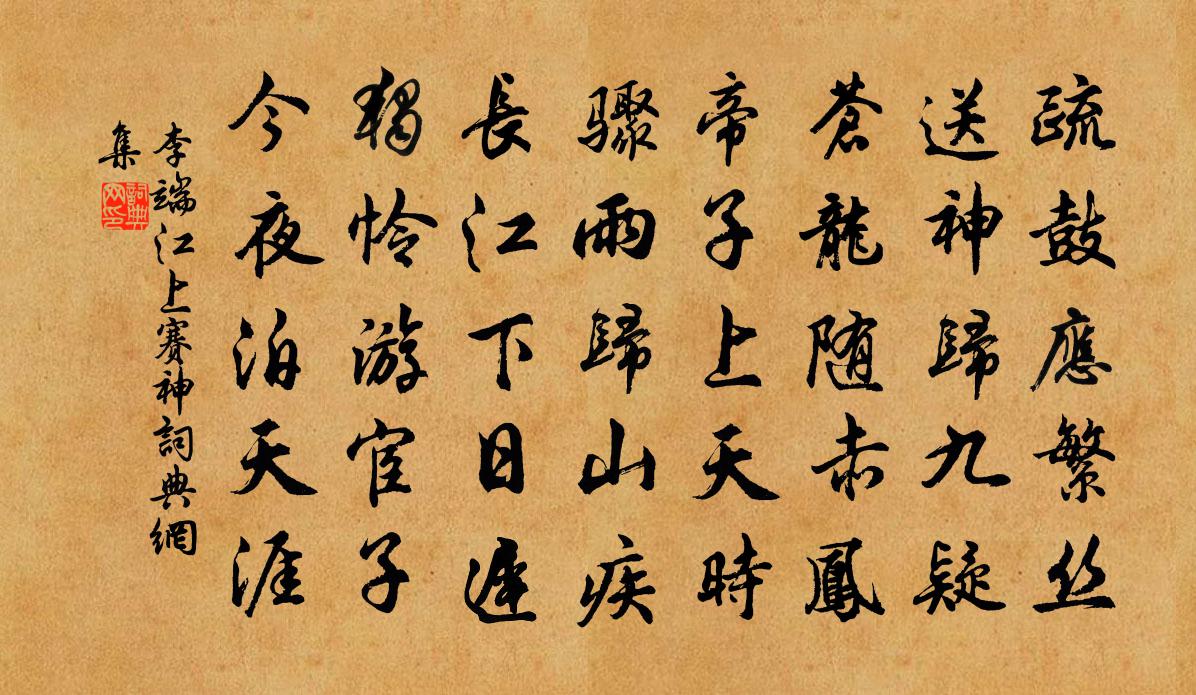 疏鼓應繁丝
送神歸九疑
蒼龍随赤鳳
帝子上天時
驟雨歸山疾
長江下日遲
獨怜游宦子
今夜泊天涯
李端江上賽神詞典網
集
詞典
网印